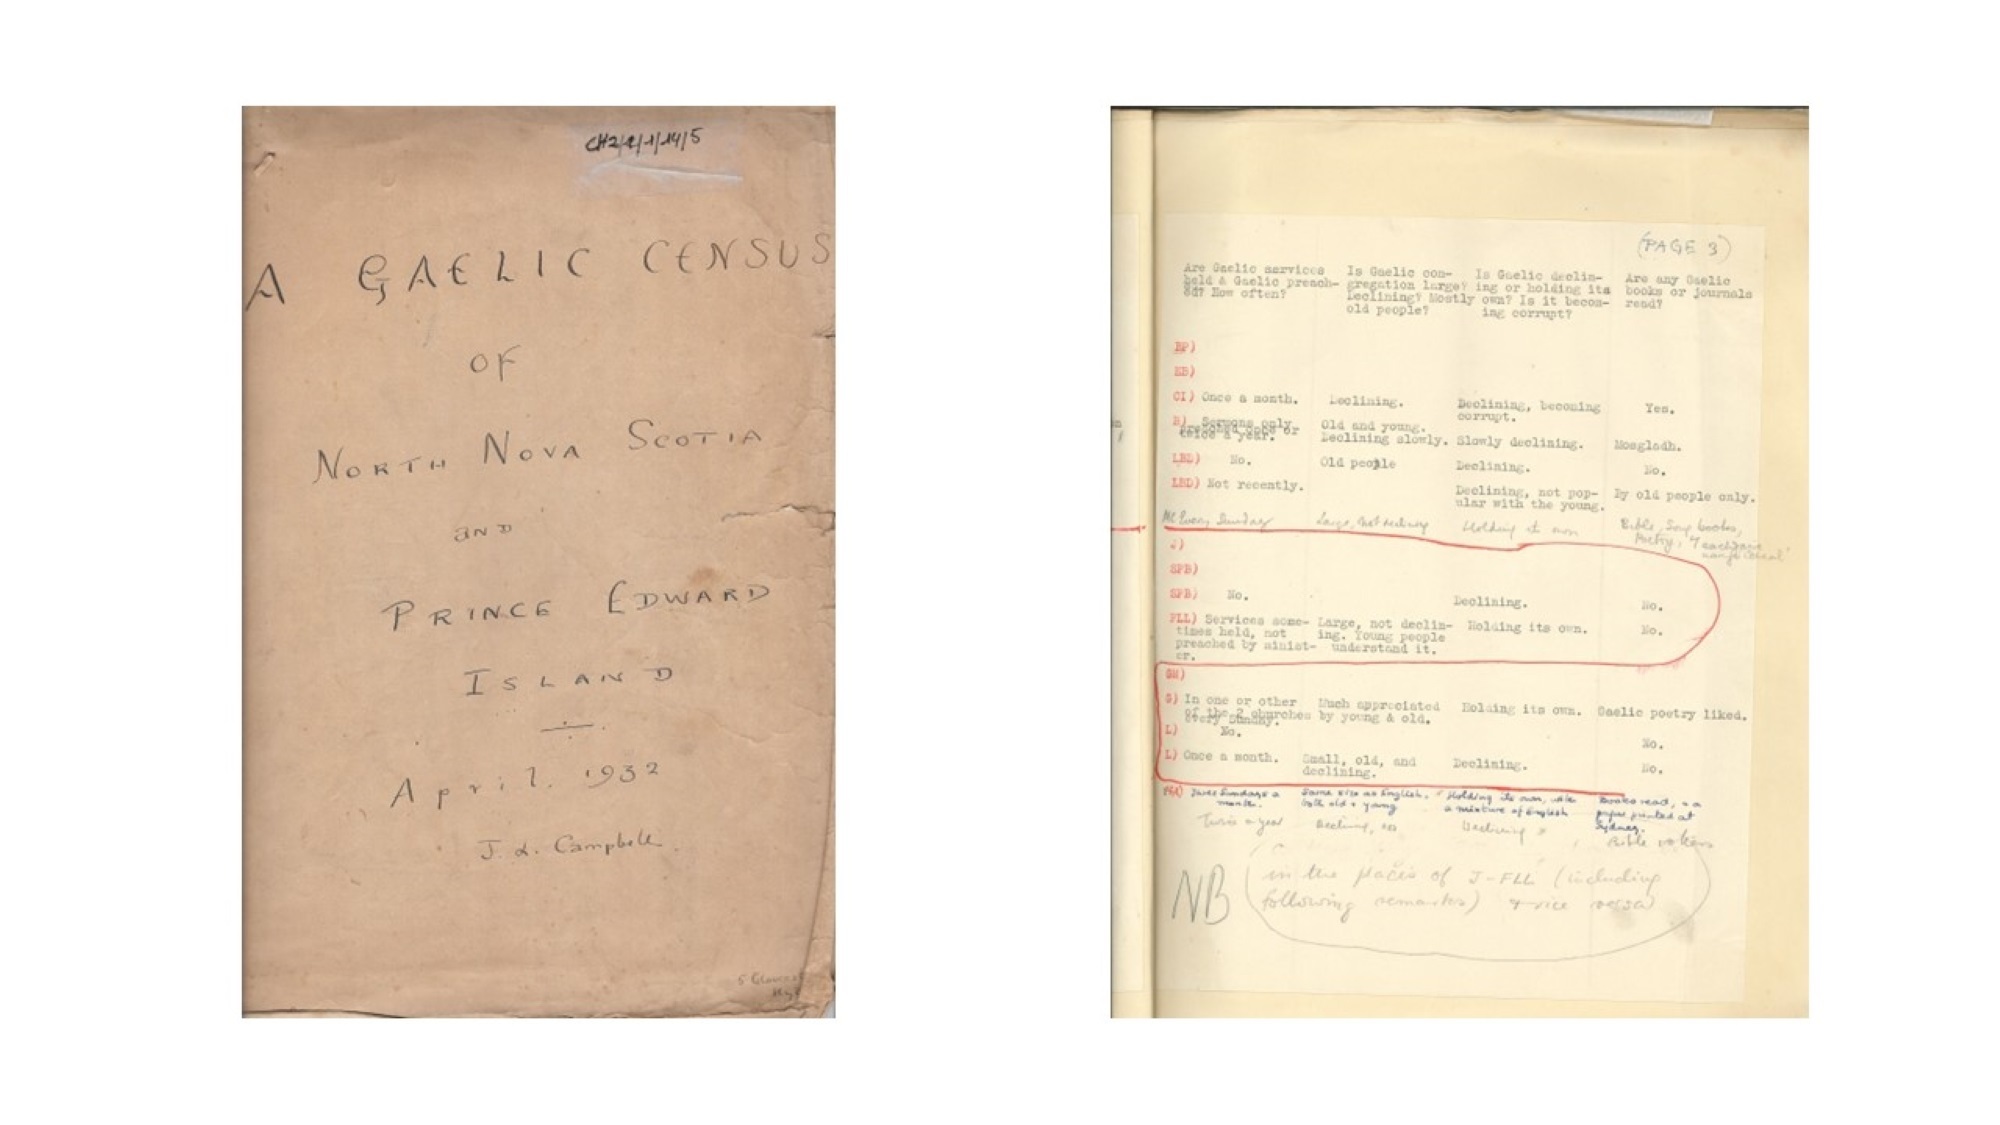 A GAELIC CENSUS
OF
NORTH NOVA SCOTIA
AND
PRINCE EDWARD
ISLAND
April. 1932
J. L. Campbell.
(PAGE 3)
Are Gaelic services held & Gaelic preached? How often?
Is Gaelic congregation large? Declining? Mostly old people?
Is Gaelic declining or holding its own? Is it becoming corrupt?
Are any Gaelic books or journals read?
BP)
CI) Once a month. Declining. Declining, becoming corrupt. Yes.
B) Sermons only preached once or twice a year. Old and young. Declining slowly. Slowly declining. Mosgladh.
LBD) No. Old people Declining. No.
LBD) Not recently. Declining, not popular with the young. By old people only.
Every Sunday Large, not declining Holding its own Bible, Song books, Poetry,
J)
SPB)
SPB) No. Declining. No.
FLL) Services sometimes held, not preached by minister. Large, not declining. Young people understand it. Holding its own. No.
GM)
S) In one or other of the 2 churches every Sunday. Much appreciated by young & old. Holding its own. Gaelic poetry liked.
L) No. No.
L) Once a month. Small, old, and declining. Declining. No.
Three Sundays a month. Same size as English. both old & young Holding its own, with a mixture of English Books read, & a paper printed at Sydney.
Twice a year Declining Bible
NB in the places of J-FLL (including
following remarks) & vice versa